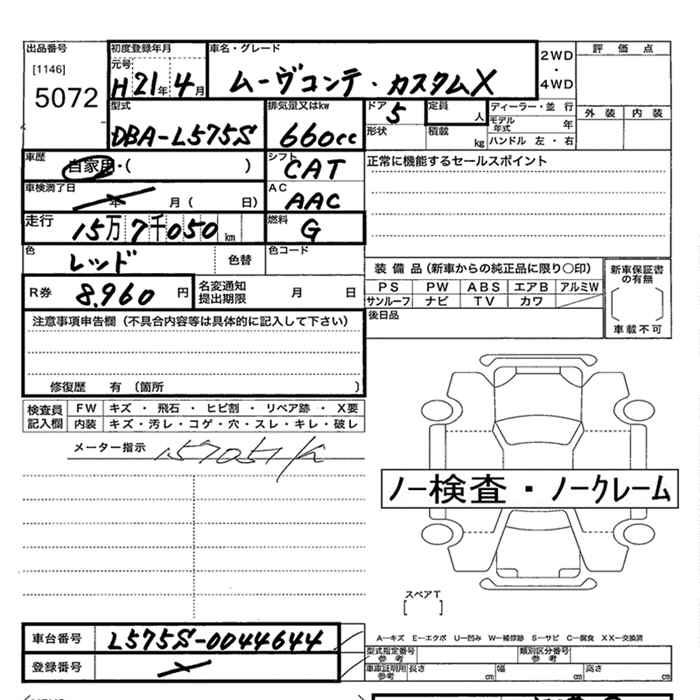 出品番号
[1146]
5072
初度登録年月
元号
H21年4月
車名・グレード
ムーヴコンテ・カスタムX
2WD
・
4WD
評価点
外装 内装
型式
DBA-L575S
排気量又はkw
660cc
ドア
5
形状
定員
人
積載
kg
ディーラー・並行
モデル年式 年
ハンドル 左・右
車歴
自家用・( )
シフト
CAT
正常に機能するセールスポイント
車検満了日
年 月( 日)
AC
AAC
走行
15万7千050km
燃料
G
色
レッド
色替
色コード
装備品(新車からの純正品に限り〇印)
PS PW ABS エアB アルミW
サンルーフ ナビ TV カワ
新車保証書の有無
車載不可
R券 8,960円
名変通知提出期限 月 日
後日品
注意事項申告欄(不具合内容等は具体的に記入して下さい)
修復歴 有 〔箇所 〕
検査員記入欄
FW キズ・飛石・ヒビ割・リペア跡・X要
内装 キズ・汚レ・コゲ・穴・スレ・キレ・破レ
メーター指示 157051k
ノー検査・ノークレーム
スペアT
[ ]
車台番号 L575S-0044644
登録番号
A―キズ E―エクボ U―凹み W―補修跡 S―サビ C―腐食 XX―交換済
型式指定番号 参考
類別区分番号 参考
車庫証明用 参考
長さ cm 幅 cm 高さ cm